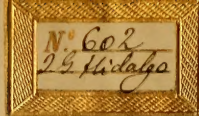 No. 602
J G Hidalgo